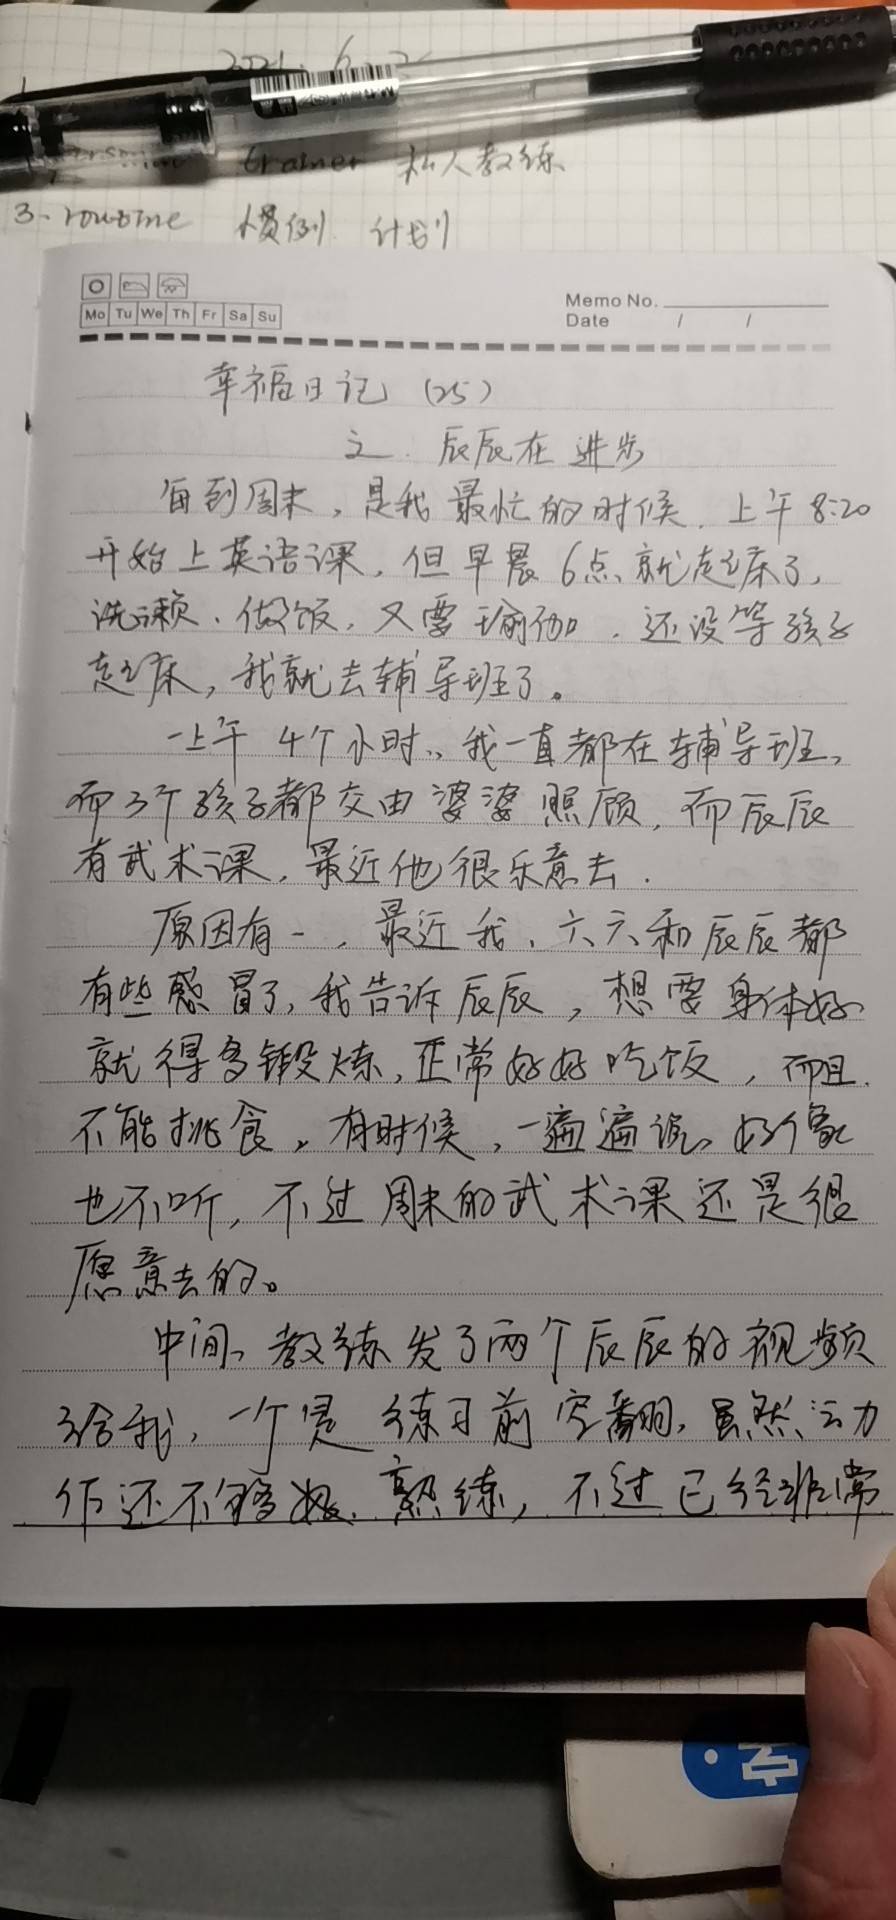 trainer 私人教练
3. routine 惯例 计划
Mo Tu We Th Fr Sa Su
Memo No.
Date / /
幸福日记 (25)
之 辰辰在进步
每到周末，是我最忙的时候，上午8:20
开始上英语课，但早晨6点就起床了，
洗漱、做饭，又要瑜伽，还没等孩子
起床，我就去辅导班了。
一上午4个小时，我一直都在辅导班，
而3个孩子都交由婆婆照顾，而辰辰
有武术课，最近他很乐意去.
原因有一，最近我、六六和辰辰都
有些感冒了，我告诉辰辰，想要身体好
就得多锻炼，正常好好吃饭，而且
不能挑食，有时候，一遍遍说，好像
也不听，不过周末的武术课还是很
愿意去的。
中间，教练发了两个辰辰的视频
给我，一个是练习前空翻，虽然动
作还不够 熟练，不过已经非常